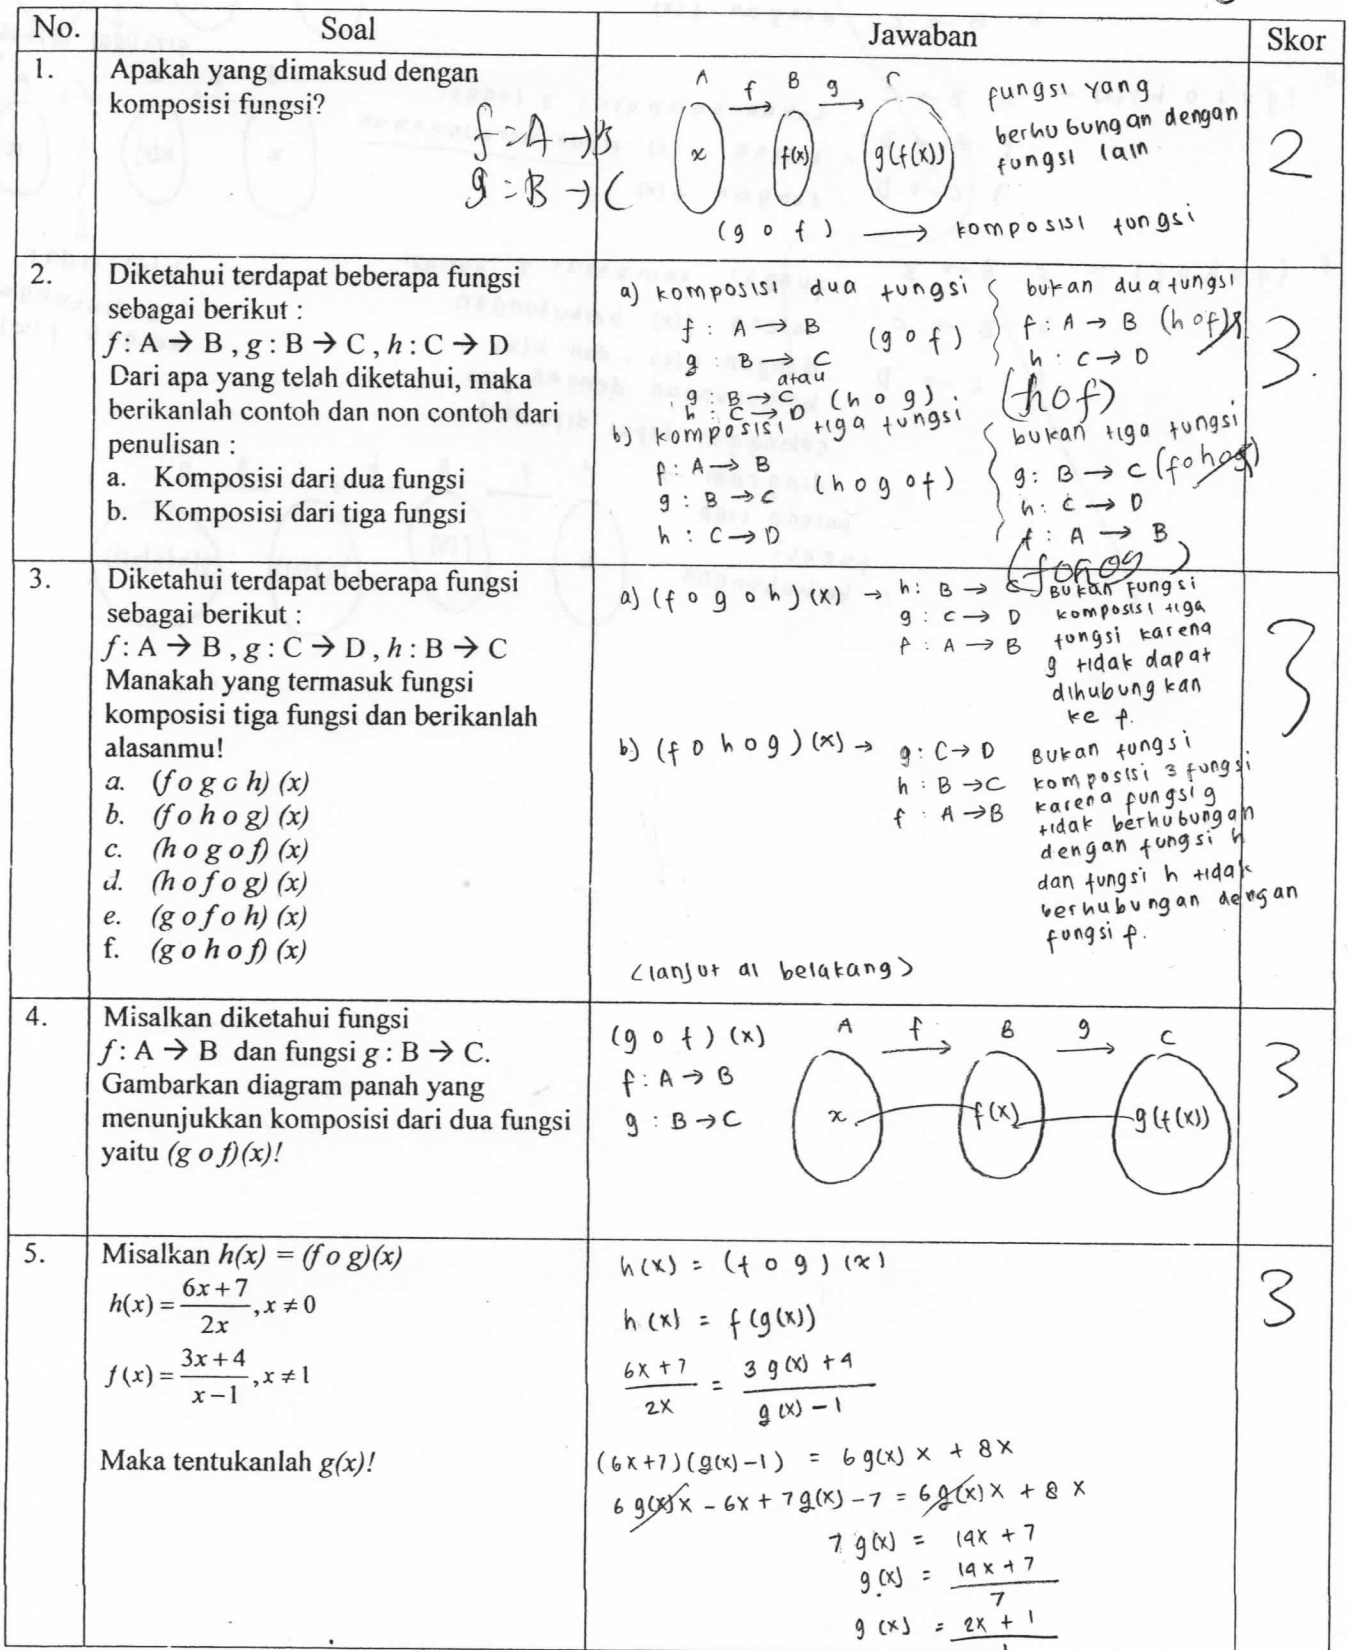 No. Soal Jawaban Skor
1. Apakah yang dimaksud dengan
komposisi fungsi?
f : A → B
g : B → C
A f B g C
x f(x) g(f(x))
(g o f) → komposisi fungsi
fungsi yang
berhubungan dengan
fungsi lain
2
2. Diketahui terdapat beberapa fungsi
sebagai berikut :
f : A → B , g : B → C , h : C → D
Dari apa yang telah diketahui, maka
berikanlah contoh dan non contoh dari
penulisan :
a. Komposisi dari dua fungsi
b. Komposisi dari tiga fungsi
a) komposisi dua fungsi
f : A → B (g o f)
g : B → C
atau
g : B → C (h o g)
h : C → D
bukan dua fungsi
f : A → B (h o f)
h : C → D
(h o f)
b) komposisi tiga fungsi
f : A → B
g : B → C (h o g o f)
h : C → D
bukan tiga fungsi
g : B → C (f o h o g)
h : C → D
f : A → B
(f o h o g)
3.
3. Diketahui terdapat beberapa fungsi
sebagai berikut :
f : A → B , g : C → D , h : B → C
Manakah yang termasuk fungsi
komposisi tiga fungsi dan berikanlah
alasanmu!
a. (f o g o h) (x)
b. (f o h o g) (x)
c. (h o g o f) (x)
d. (h o f o g) (x)
e. (g o f o h) (x)
f. (g o h o f) (x)
a) (f o g o h) (x) → h : B → C
g : C → D
f : A → B
Bukan fungsi
komposisi tiga
fungsi karena
g tidak dapat
dihubungkan
ke f.
b) (f o h o g) (x) → g : C → D
h : B → C
f : A → B
Bukan fungsi
komposisi 3 fungsi
karena fungsi g
tidak berhubungan
dengan fungsi h
dan fungsi h tidak
berhubungan dengan
fungsi f.
<lanjut di belakang>
3
4. Misalkan diketahui fungsi
f : A → B dan fungsi g : B → C.
Gambarkan diagram panah yang
menunjukkan komposisi dari dua fungsi
yaitu (g o f)(x)!
(g o f) (x)
f : A → B
g : B → C
A f B g C
x f(x) g(f(x))
3
5. Misalkan h(x) = (f o g)(x)
h(x) = (6x+7)/(2x), x ≠ 0
f(x) = (3x+4)/(x−1), x ≠ 1
Maka tentukanlah g(x)!
h(x) = (f o g) (x)
h(x) = f(g(x))
(6x + 7)/(2x) = (3 g(x) + 4)/(g(x) − 1)
(6x+7)(g(x)−1) = 6 g(x) x + 8x
6 g(x) x − 6x + 7 g(x) − 7 = 6 g(x) x + 8x
7 g(x) = 14x + 7
g(x) = (14x + 7)/7
g(x) = (2x + 1)/1
3